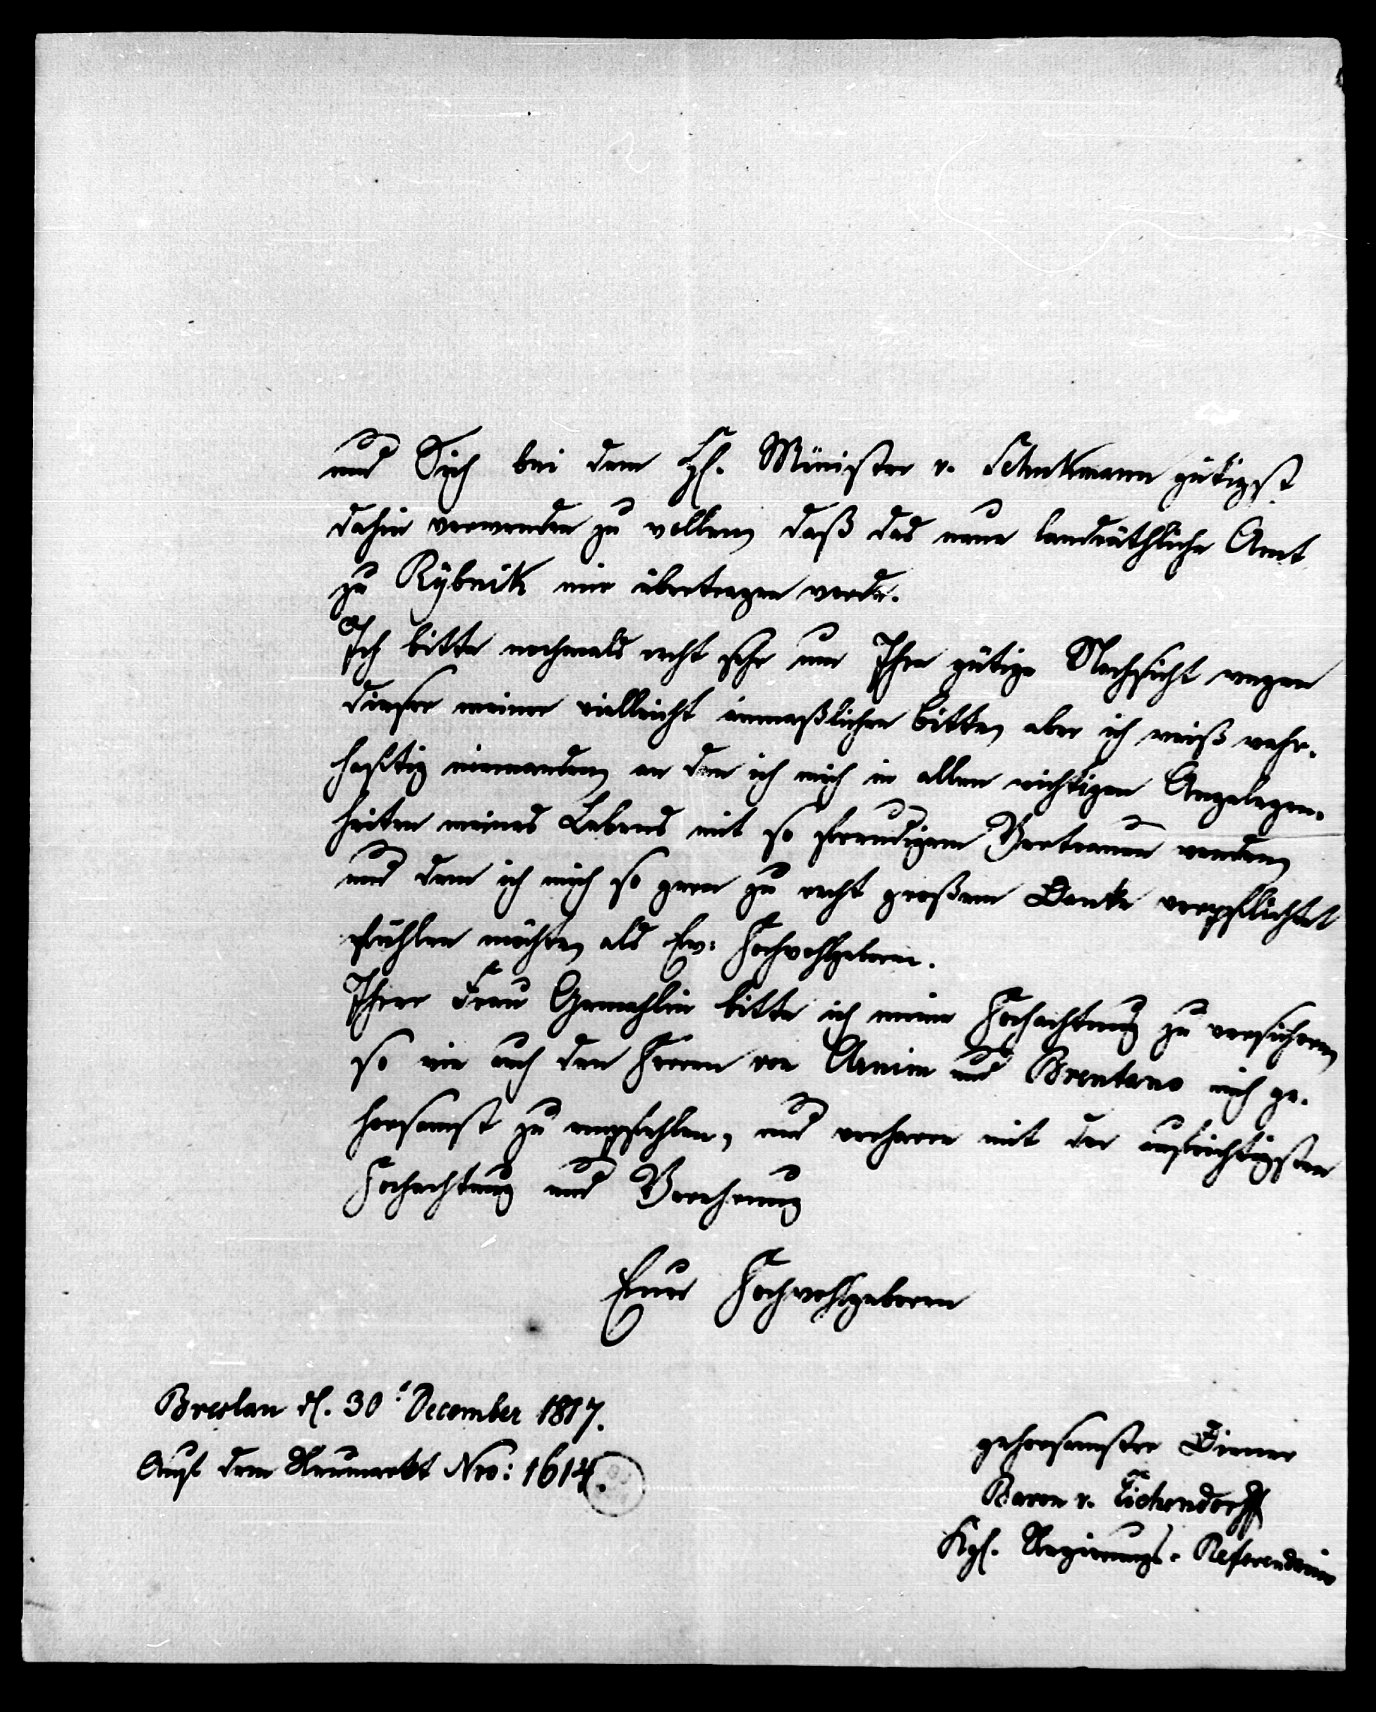 und Sich bei dem H. Minister v. Schukmann gütigst
dahin verwenden zu wollen, daß das neue landräthliche Amt
zu Rybnik mir übertragen werde.
Ich bitte nochmals recht sehr um Ihre gütige Nachsicht wegen
dieser meiner vielleicht anmaßlichen Bitte, aber ich weiß wahr-
haftig niemanden, an den ich mich in allen wichtigen Angelegen-
heiten meines Lebens mit so freudigem Vertrauen wenden,
und dem ich mich so gern zu recht großem Danke verpflichtet
fühlen möchte, als Ew: Hochwohlgeboren.
Ihrer Frau Gemahlin bitte ich meine Hochachtung zu versichern,
so wie auch den Herren von Arnim und Brentano mich ge-
horsamst zu empfehlen, und verharre mit der aufrichtigsten
Hochachtung und Verehrung
Euer Hochwohlgeboren
Breslau d. 30t December 1817.
Auf dem Neumarkt Nro: 1614.
gehorsamster Diener
Baron v. Eichendorff
Kgl. Regierungs-Referendair